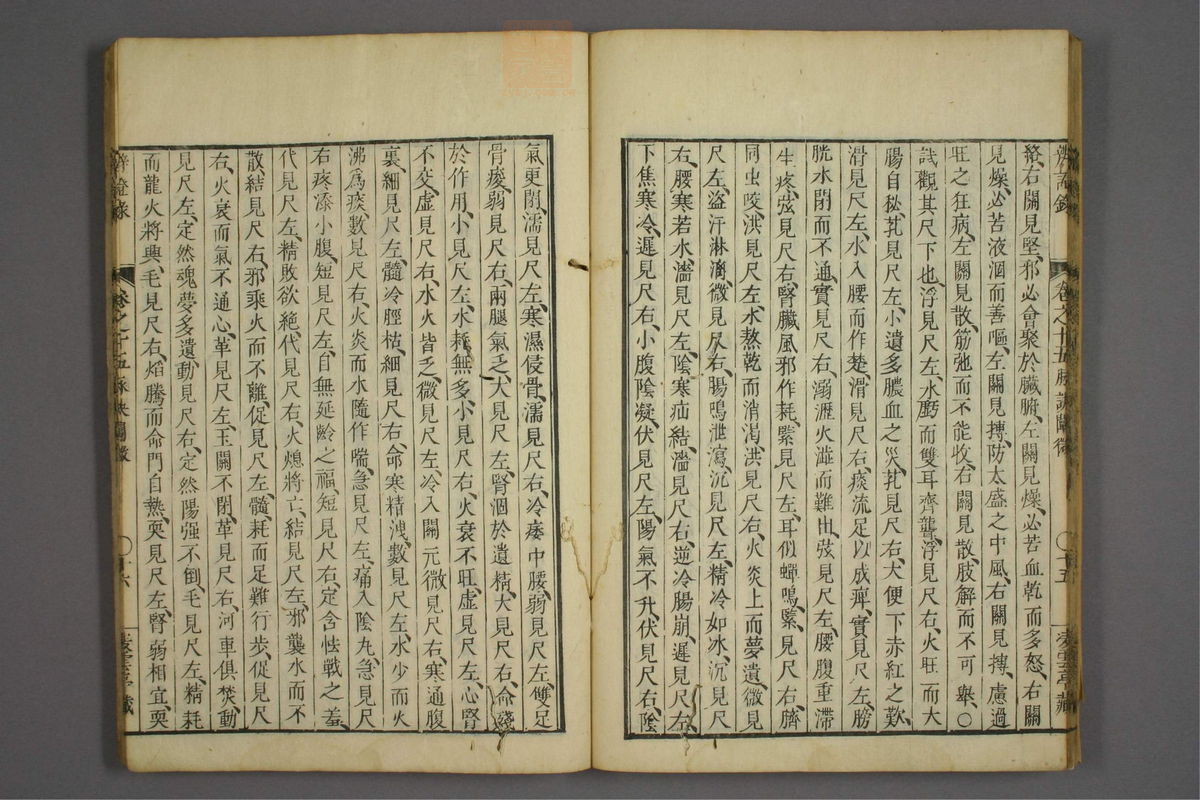 辨證錄 卷之十五脉訣闡微 〇十五
谿、右關見堅、邪必會聚於臟腑、左關見燥、必苦血乾而多怒、右關
見燥、必苦液涸而善嘔、左關見摶、防太盛之中風、右關見摶、慮過
旺之狂病、左關見散、筋弛而不能收、右關見散、肢解而不可舉、〇
試觀其尺下也、浮見尺左、水虧而雙耳齊聾、浮見尺右、火旺而大
腸自秘、芤見尺左、小遺多膿血之災、芤見尺右、大便下赤紅之歎、
滑見尺左、水入腰而作楚、滑見尺右、痰流足以成痺、實見尺左、膀
胱水閉而不通、實見尺右、溺瀝火澁而難出、弦見尺左、腰腹重滯
生疼、弦見尺右、腎臟風邪作耗、緊見尺左、耳似蟬鳴、緊見尺右、臍
同虫咬、洪見尺左、水熬乾而消渴、洪見尺右、火炎上而夢遺、微見
尺左、盜汗淋漓、微見尺右、腸鳴泄瀉、沉見尺左、精冷如冰、沉見尺
右、腰寒若水、濇見尺左、陰寒疝結、濇見尺右、逆冷腸崩、遲見尺左、
下焦寒冷、遲見尺右、小腹陰凝、伏見尺左、陽氣不升、伏見尺右、陰
氣更閉、濡見尺左、寒濕侵骨、濡見尺右、冷痿中腰、弱見尺左、雙足
骨痠、弱見尺右、兩腿氣乏、大見尺左、腎涸於遺精、大見尺右、命殘
於作用、小見尺左、水耗無多、小見尺右、火衰不旺、虛見尺左、心腎
不交、虛見尺右、水火皆乏、微見尺左、冷入關元、微見尺右、寒通腹
裏、細見尺左、髓冷脛枯、細見尺右、命寒精洩、數見尺左、水少而火
沸為痰、數見尺右、火炎而水隨作喘、急見尺左、痛入陰丸、急見尺
右、疼添小腹、短見尺左、自無延齡之福、短見尺右、定含怯戰之羞、
代見尺左、精敗欲絶、代見尺右、火熄將亡、結見尺左、邪襲水而不
散、結見尺右、邪乘火而不離、促見尺左、髓耗而足難行步、促見尺
右、火衰而氣不通心、革見尺左、玉關不閉、革見尺右、河車俱焚、動
見尺左、定然魂夢多遺、動見尺右、定然陽强不倒、毛見尺左、精耗
而龍火將興、毛見尺右、焰騰而命門自熱、耎見尺左、腎弱相宜、耎
辨證錄 卷之十五脉訣闡微 〇十六